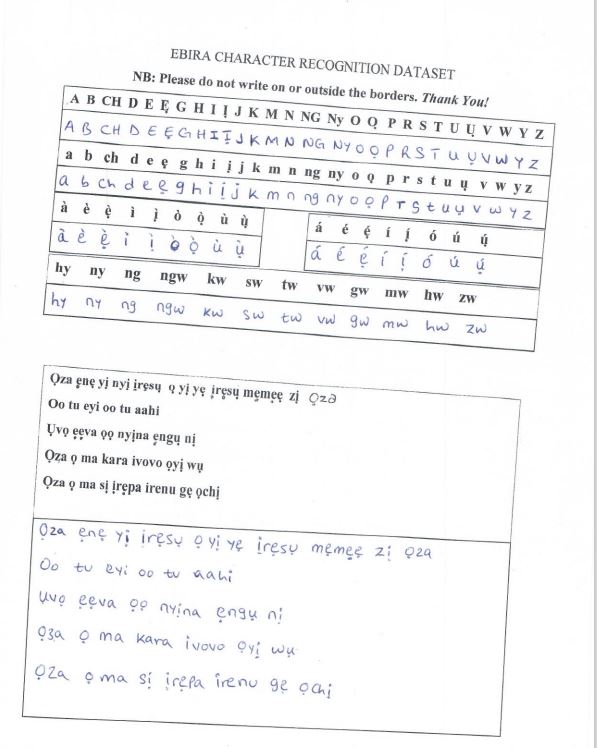 EBIRA CHARACTER RECOGNITION DATASET
NB: Please do not write on or outside the borders. Thank You!
A B CH D E Ẹ G H I Ị J K M N NG Ny O Ọ P R S T U Ụ V W Y Z
A B CH D E Ẹ G H I Ị J K M N NG NY O Ọ P R S T U Ụ V W Y Z
a b ch d e ẹ g h i ị j k m n ng ny o ọ p r s t u ụ v w y z
a b ch d e ẹ g h i ị j k m n ng ny o ọ p r s t u ụ v w y z
à è ẹ̀ ì ị̀ ò ọ̀ ù ụ̀
à è ẹ̀ ì ị̀ ò ọ̀ ù ụ̀
á é ẹ́ í ị́ ó ú ụ́
á é ẹ́ í ị́ ó ú ụ́
hy ny ng ngw kw sw tw vw gw mw hw zw
hy ny ng ngw kw sw tw vw gw mw hw zw
Ọza ẹnẹ yị nyị ịrẹsụ ọ yị yẹ ịrẹsụ mẹmẹẹ zị ọza
Oo tu eyi oo tu aahi
Ụvọ ẹẹva ọọ nyịna ẹngụ nị
Ọza ọ ma kara ivovo ọyị wụ
Ọza ọ ma sị ịrẹpa irenu gẹ ọchị
Ọza ẹnẹ yị irẹsụ ọ yị yẹ ịrẹsụ mẹmẹẹ zị ọza
Oo tu eyi oo tu aahi
Ụvọ ẹẹva ọọ nyịna ẹngụ nị
Ọza ọ ma kara ivovo ọyị wụ
Ọza ọ ma sị ịrẹpa irenu gẹ ọchị